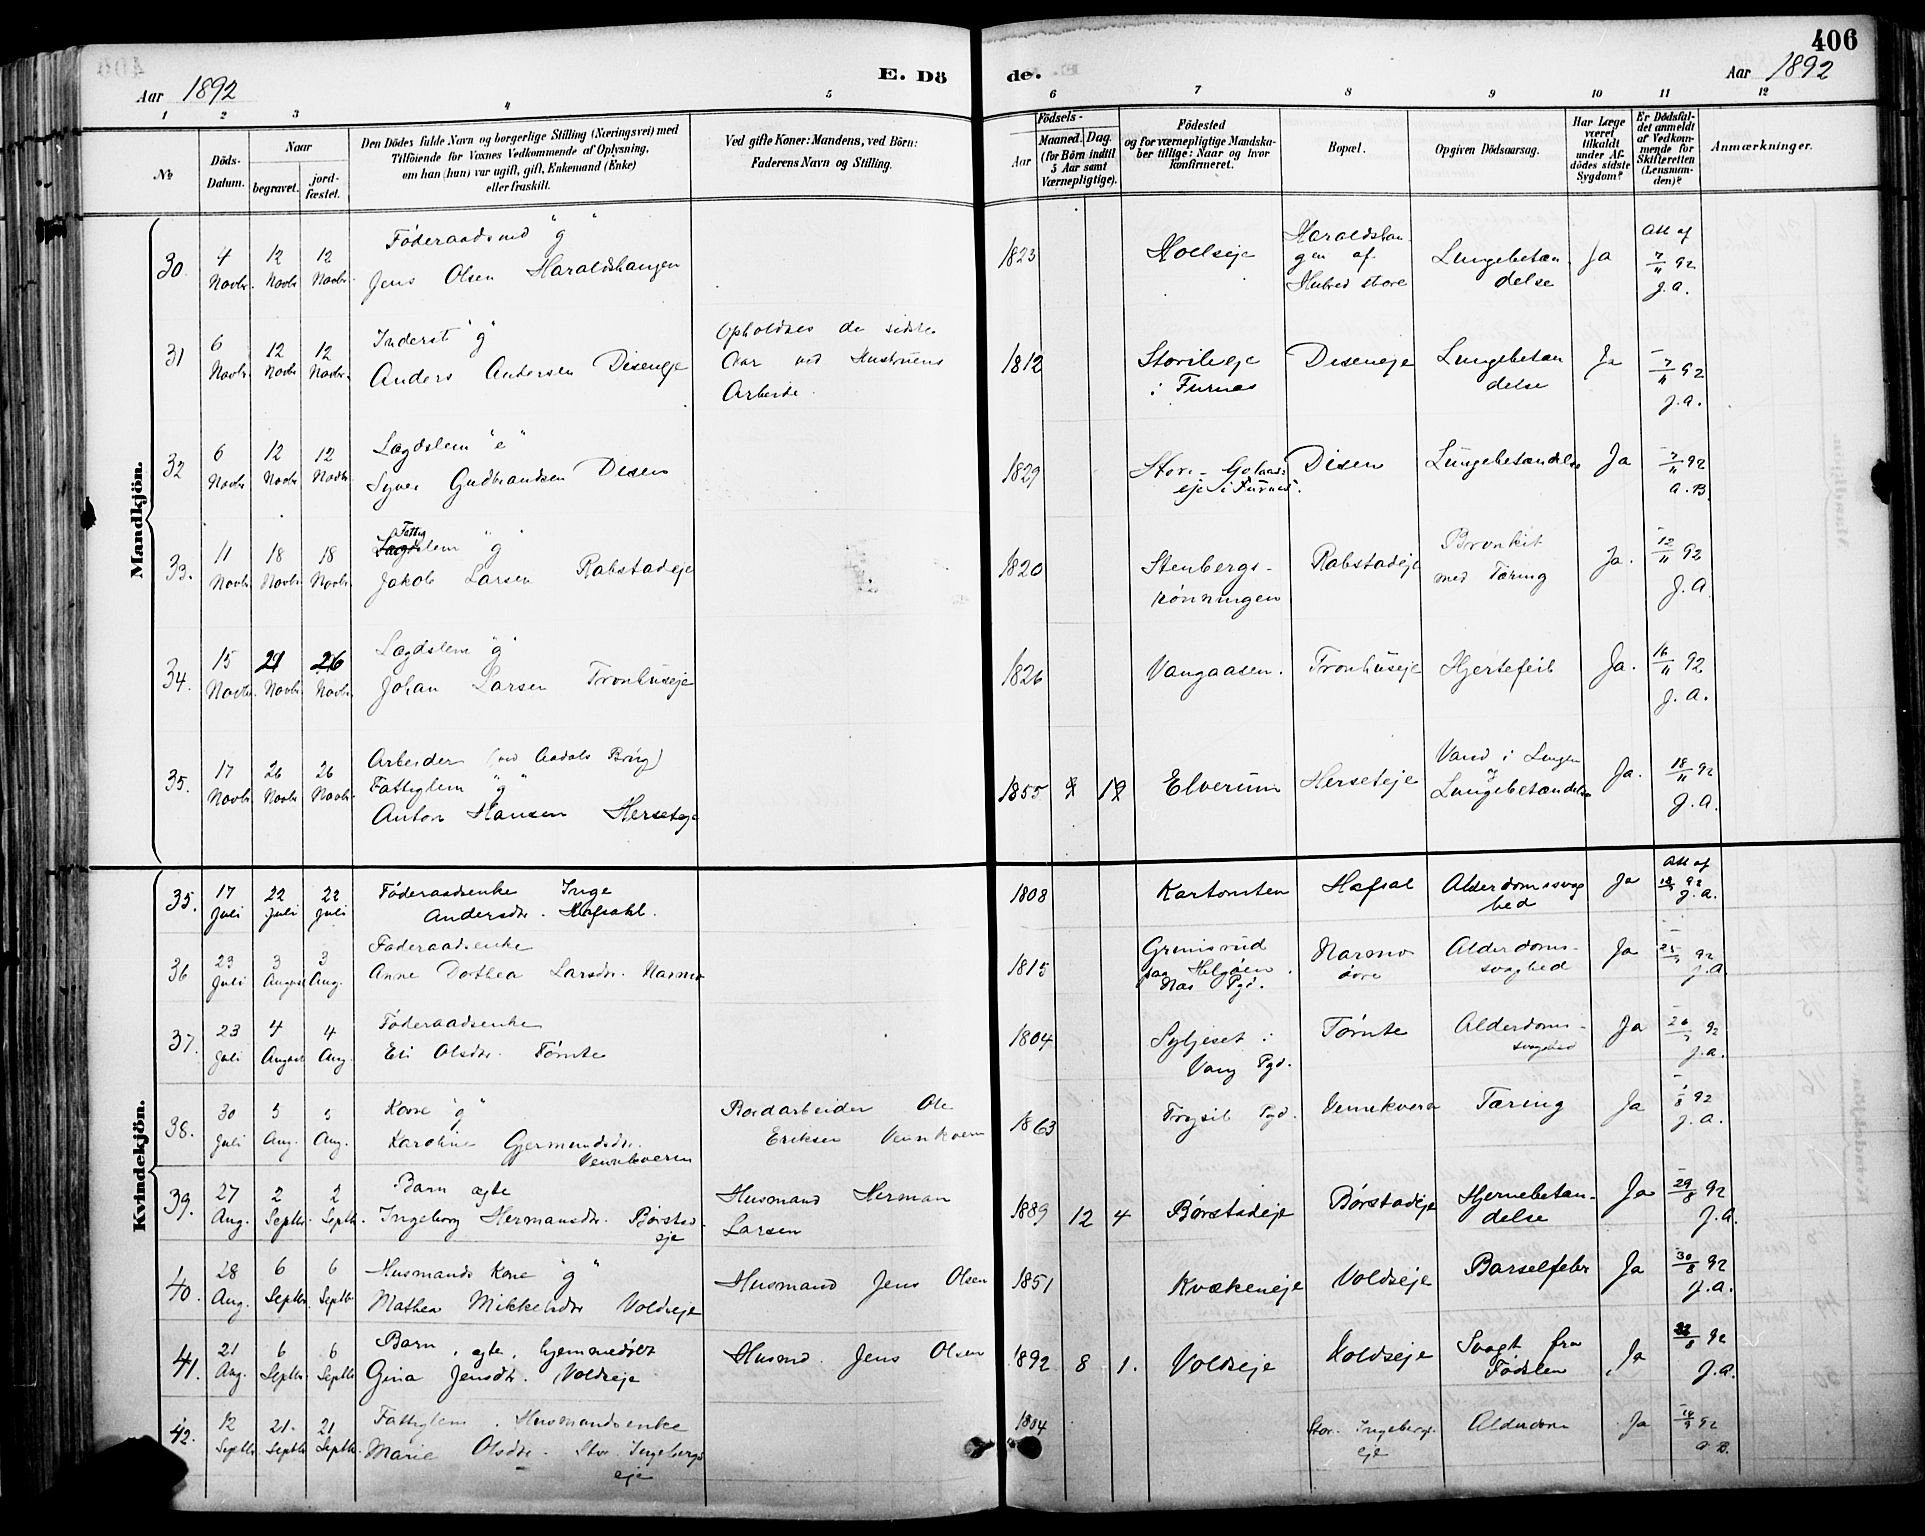 406
Aar 1892
E. Dö
de.
Aar 1892
1 2 3 4 5 6 7 8 9 10 11 12
№
Döds-
Datum.
Naar
begravet.
jord-
fæstet.
Den Dödes fulde Navn og borgerlige Stilling (Næringsvei) med
Tilföiende for Voxnes Vedkommende af Oplysning,
om han (hun) var ugift, gift, Enkemand (Enke)
eller fraskilt.
Ved gifte Koner: Mandens, ved Börn:
Faderens Navn og Stilling.
Födsels-
Aar
Maaned.
Dag.
(for Börn indtil
5 Aar samt
Værnepligtige).
Födested
og for værnepligtige Mandska-
ber tillige: Naar og hvor
konfirmeret.
Bopæl.
Opgiven Dödsaarsag.
Har Læge
været
tilkaldt
under Af-
dödes sidste
Sygdom?
Er Dödsfal-
det anmeldt
af Vedkom-
mende for
Skifteretten
(Lensman-
den)?
Anmærkninger.
Mandkjön.
30. 4 Novbr. 12 Novbr. 12 Novbr.
Föderaadsmd "g"
Jens Olsen Haraldshaugen
1823
Haraldshau-
gen af
Hubred store
Lungebetæn-
delse
Ja
Att af
7/11 92
J.A.
31 6 Novbr. 12 Novbr. 12 Novbr.
Inderst "g"
Anders Andersen Diseneje
Opholdtes de sidste
Aar ved Hustruens
Arbeide.
1812
i Furnes
Diseneje
Lungebetæn
delse
Ja
7/11 92
J.A.
32 6 Novbr 12 Novbr 12 Novbr
Lægdslem "e"
Syver Gudbrandsen Disen
1829
eje i Furnes.
Disen
Lungebetændelse
Ja
7/11 92
A.B.
33. 11 Novbr 18 Novbr 18 Novbr
Fattig
Lægdslem "g"
Jakob Larsen Rabstadeje
1820
Stenbergs-
rönningen
Rabstadeje
Bronkit
med Tæring
Ja.
12/11 92
J.A.
34. 15 Novbr. 21 Novbr. 26 Novbr.
Lægdslem "g"
Johan Larsen Tronhuseje
1826
Vangaasen.
Tronhuseje
Hjertefeil
Ja.
16/11 92
J.A.
35. 17 Novbr. 26 Novbr. 26 Novbr.
Arbeider (ved Aadals Brug)
Fattiglem "g"
Anton Hansen Herseteje
1855 12
Elverum
Herseteje
Vand i Lungen
og
Lungebetændelse
Ja.
18/11 92
J.A.
Kvindekjön.
35. 17 Juli 22 Juli 22 Juli
Föderaadsenke Inge
Andersdr. Hafsahl.
1808
Kartomten
Hafsal
Alderdomssvag
hed
Ja
Att af
18/7 92
J.A.
36 23 Juli 3 August 3 Aug.
Föderaadsenke
Anne Dorthea Larsdr. Narmo
1815
Grimsrud
paa Helgöen.
Næs Pgd.
Narmo
övre
Alderdoms-
svaghed
Ja
25/7 92
J.A.
37. 23 Juli 4 August 4 Aug.
Föderaadsenke
Eli Olsdr. Törnte
1804
Syljeset i
Vang Pgd.
Törnte
Alderdoms-
svaghed
Ja
26/7 92
J.A.
38. 30 Juli 5 Aug. 5 Aug.
Kone "g"
Karoline Gjermundsdr.
Vennkvern
Bordarbeider Ole
Eriksen Vennkvern
1863
Trysil Pgd.
Vennkvern
Tæring
Ja
1/8 92
J.A.
39. 27 Aug. 2 Septbr. 2 Septbr.
Barn ægte
Ingeborg Hermansdr. Börstad-
eje
Husmand Herman
Larsen
1889 12 4
Börstadeje
Börstadeje
Hjernebetæn-
delse
Ja
29/8 92
J.A.
40. 28 Aug. 6 Septbr. 6 Septbr
Husmands Kone "g"
Mathea Mikkelsdr Voldseje
Husmand Jens Olsen
1851
Kvækeneje
Voldseje
Barselfeber
Ja
30/8 92
J.A.
41. 21 Aug. 6 Septbr 6 Septbr
Barn, ægte, hjemmedöbt
Gina Jensdr. Voldseje
Husmd. Jens Olsen
1892 8 1.
Voldseje
Voldseje
Svagt fra
Födslen
Ja
92
J.A.
42. 12 Septbr. 21 Septbr 21 Septbr.
Fattiglem. Husmandsenke
Marie Olsdr. Stor-Ingebergs
eje
1804
Stor-Ingebergs-
eje
Alderdom
Ja
14/9 92
A.B.